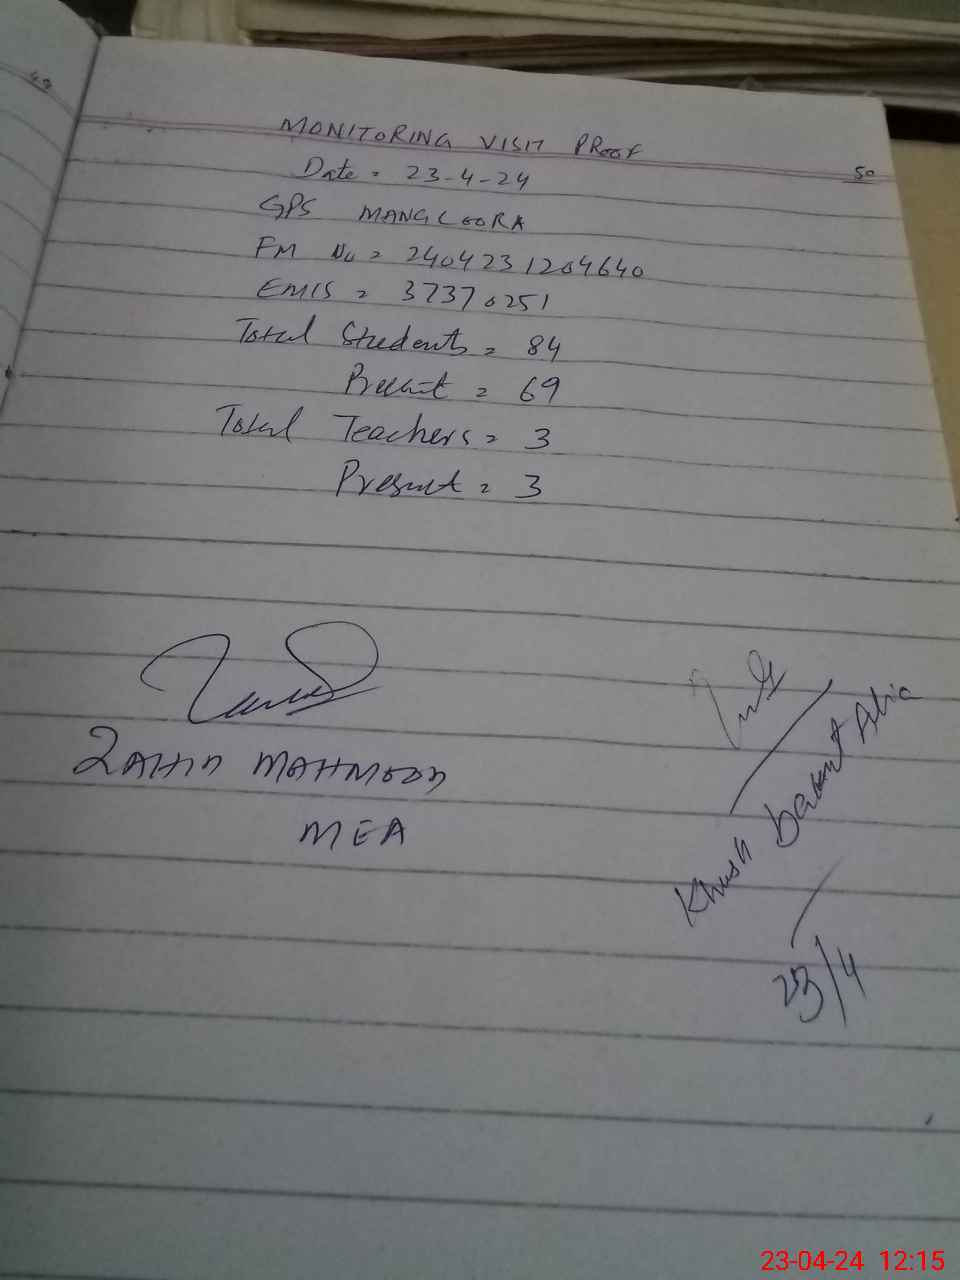 49
MONITORING VISIT PROOF
50
Date = 23-4-24
GPS MANGLOORA
FM No = 2404231204640
EMIS = 37370251
Total Students = 84
Present = 69
Total Teachers = 3
Present = 3
ZAHID MAHMOOD
MEA
Khush bakht Alia
23/4
23-04-24 12:15